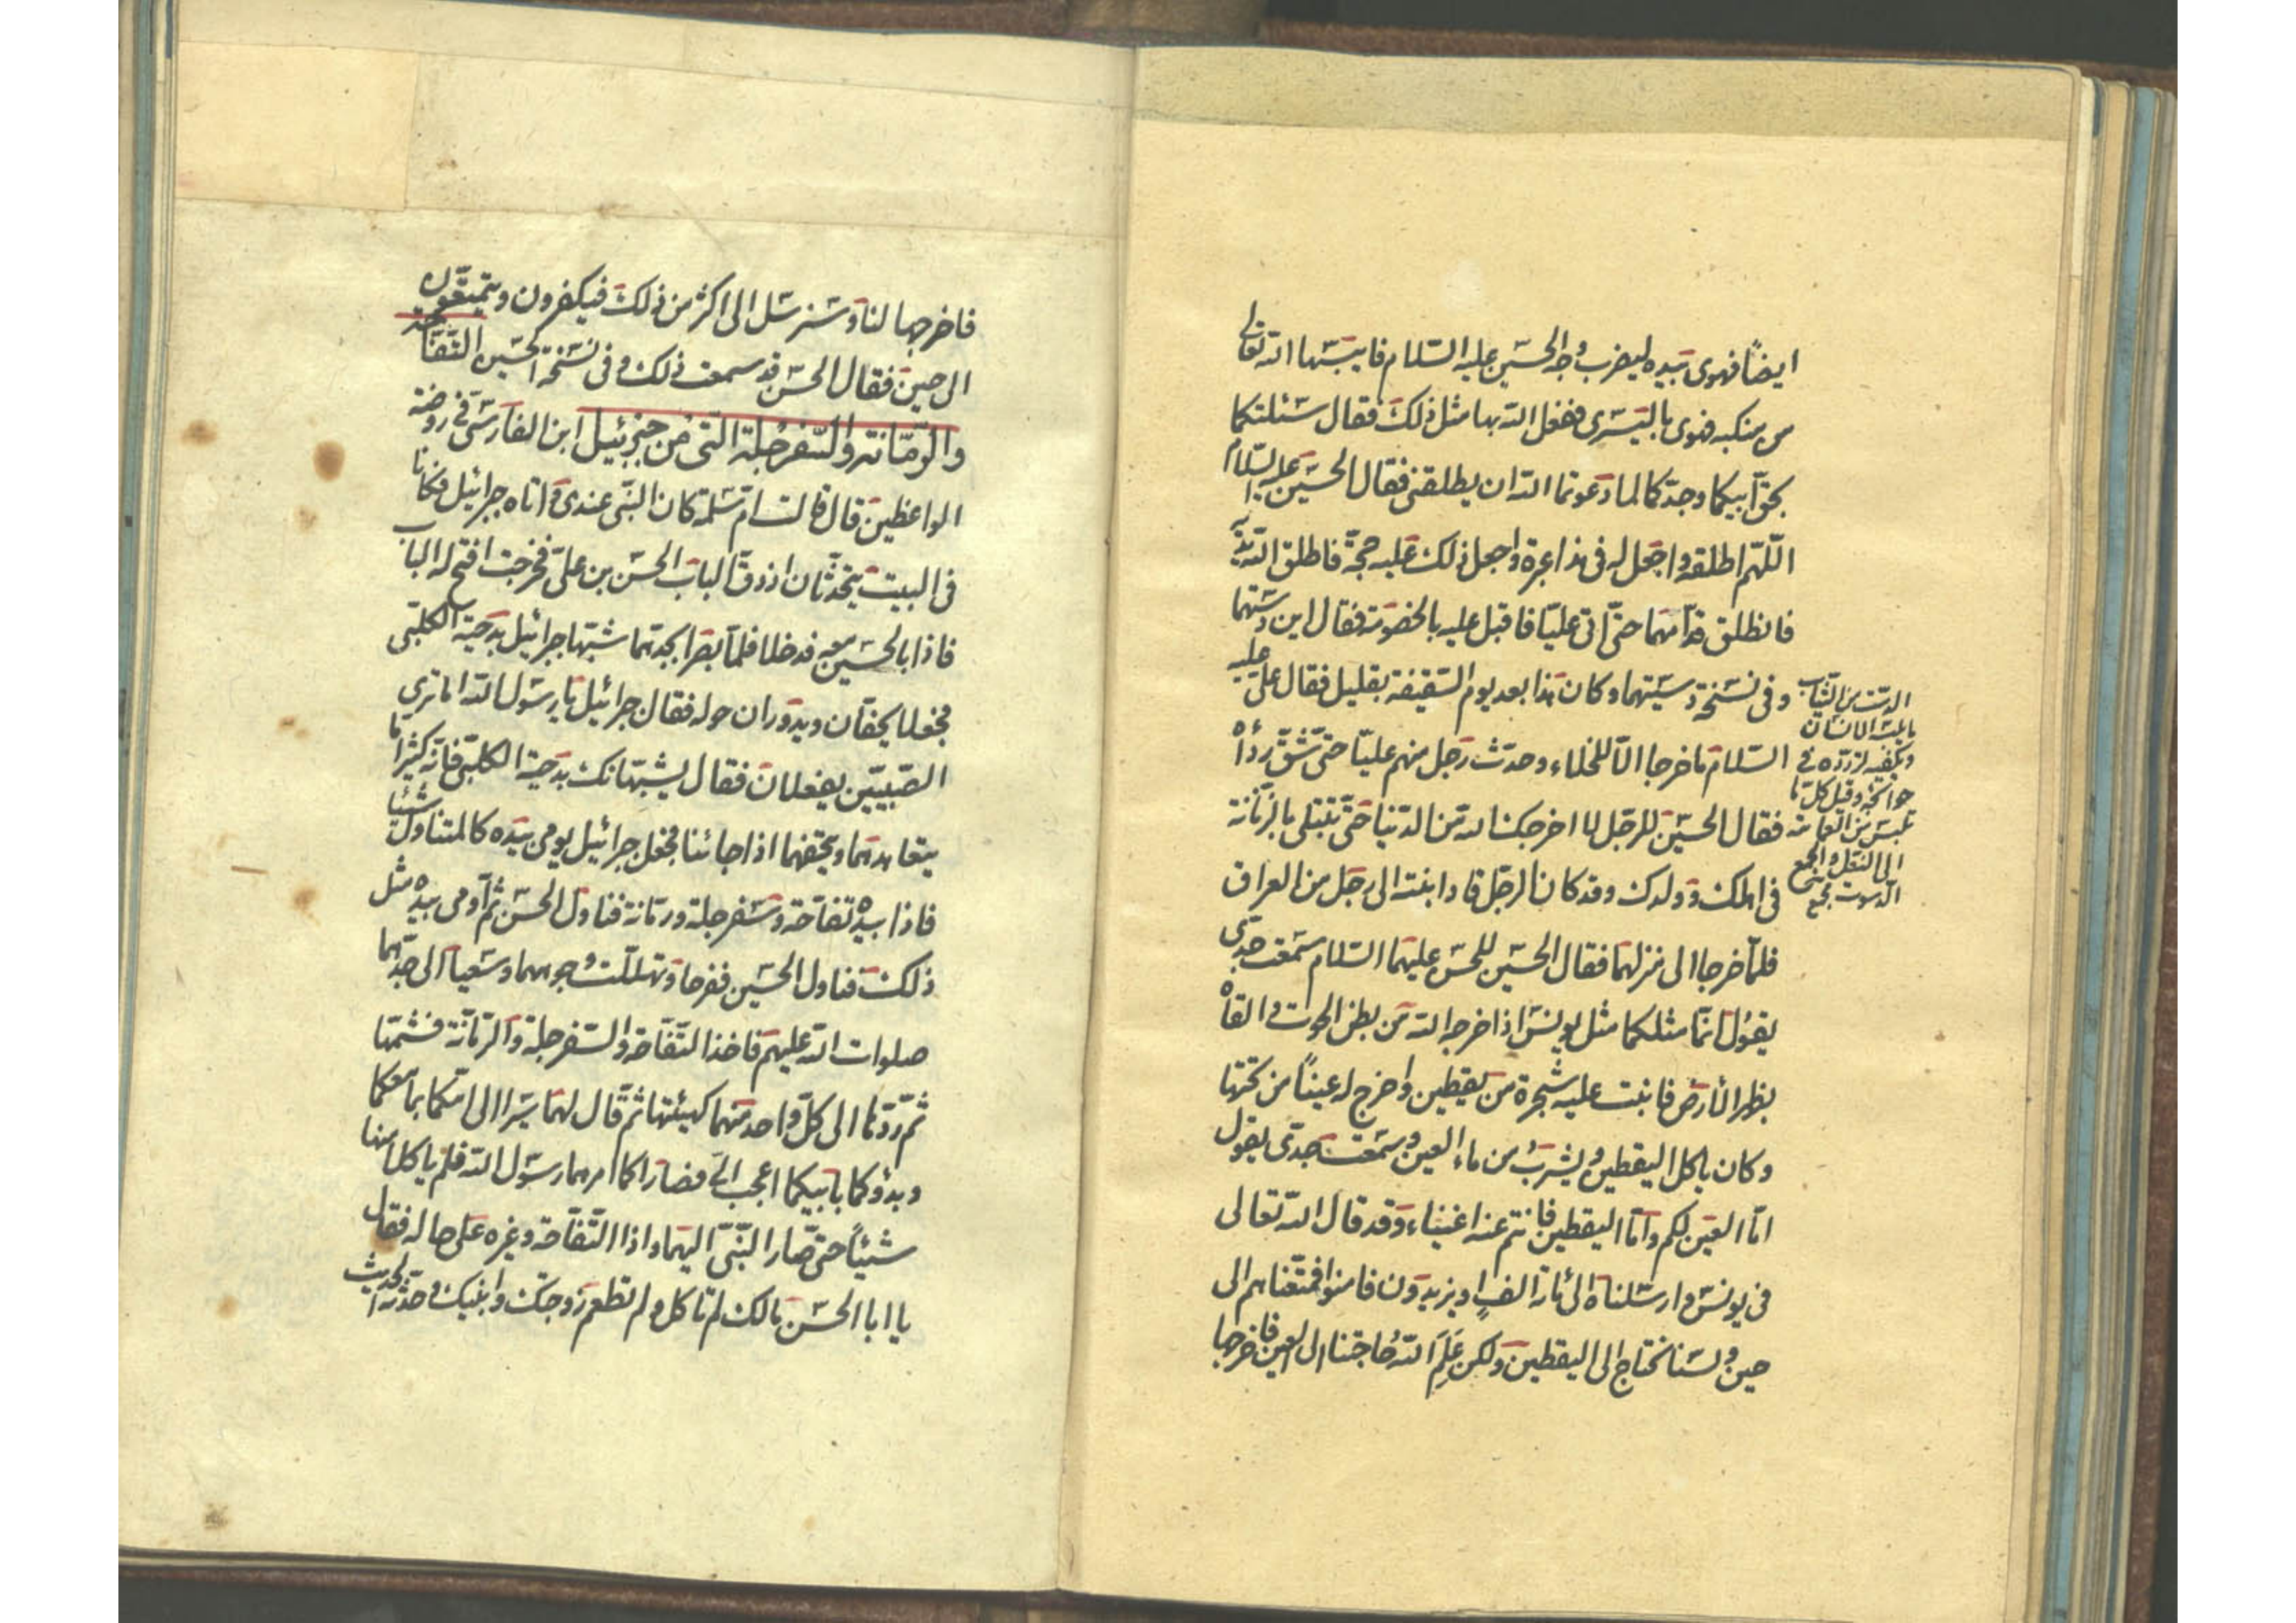 ايضاً فهوى بيده ليضرب وجه الحسين عليه السّلام فايبسها الله تعالى
من منكبه فهوى باليسرى ففعل الله بها مثل ذلك فقال سئلتكما
بحقّ ابيكما وجدّكما لما دعوتما الله ان يطلقنى فقال الحسين عليه السّلام
اللّهمّ اطلقه واجعل له فى هذا عبرة واجعل ذلك عليه حجّة فاطلق الله يديه
فانطلق قدّامهما حتّى اتى عليّا فاقبل عليه بالخصومة فقال اين دسّتهما
وفى نسخة دسيتهما وكان هذا بعد يوم السّقيفة بقليل فقال علىّ عليه
السّلام ماخرجا الّا للخلاء وحدث رجل منهم عليّا حتّى شقّ رداه
فقال الحسين للرجل لا اخرجك الله من الدنيا حتّى تبتلى بالدّياثة
فى اهلك وولدك وقد كان الرجل قاد ابنته الى رجل من العراق
فلمّا خرجا الى منزلهما فقال الحسين للحسن عليهما السّلام سمعت جدّى
يقول انّما مثلكما مثل يونس اذ اخرجه الله من بطن الحوت والقاه
بظهر الأرض فانبت عليه شجرة من يقطين واخرج له عيناً من تحتها
وكان ياكل اليقطين ويشرب من ماء العين وسمعت جدّى يقول
امّا العين لكم وامّا اليقطين فانتم عنه اغنياء وقد قال الله تعالى
فى يونس وارسلناه الى مائة الف او يزيدون فامنوا فمتّعناهم الى
حين ولسنا نحتاج الى اليقطين ولكن علم الله حاجتنا الى العين فاخرجها
الدست من الثياب
ما يلبسه الانسان
ويكفيه لتردّده فى
حوائجه وقيل كلّ ما
يلبس من العمامة
الى النعل والجمع
الدسوت مجمع
فاخرجها لنا وسنرسل الى اكثر من ذلك فيكفرون ويتمتّعون
الى حين فقال الحسن قد سمعت ذلك وفى نسخة الحسين التّفّاحة
والرّمّانة والسّفرجلة الّتى من جبرئيل ابن الفارسى فى روضة
الواعظين قال قالت امّ سلمة كان النّبى عندى واتاه جبرائيل فكانا
فى البيت يتحدّثان اذ دقّ الباب الحسن بن علىّ فخرجت افتح له الباب
فاذا بالحسين معه فدخلا فلمّا بصرا بجدّهما شبّها جبرائيل بدحية الكلبّى
فجعلا يحفّان ويدوران حوله فقال جبرائيل يا رسول الله اما ترى
الصّبيّين يفعلان فقال يشبّهانك بدحية الكلبّى فانّه كثيرا ما
يتعاهدهما ويتحفهما اذا جائنا فجعل جبرائيل يومى بيده كالمتناول شيئا
فاذا بيده تفّاحة وسفرجلة ورمّانة فناول الحسن ثمّ اومى بيده مثل
ذلك فناول الحسين ففرحا وتهلّلت وجوههما وسعيا الى جدّهما
صلوات الله عليهم فاخذ التّفّاحة والسّفرجلة والرّمّانة فشمّها
ثمّ ردّها الى كلّ واحد منهما كهيئتها ثمّ قال لهما سيرا الى امّكما بما معكما
وبدؤكما بابيكما اعجب الىّ فصارا كما امرهما رسول الله فلم ياكلا منها
شيئاً حتّى صار النّبّى اليهما واذا التّفّاحة وغيره على حاله فقال
يا ابا الحسن مالك لم تاكل ولم تطعم زوجتك وابنيك وحدّثه الحديث